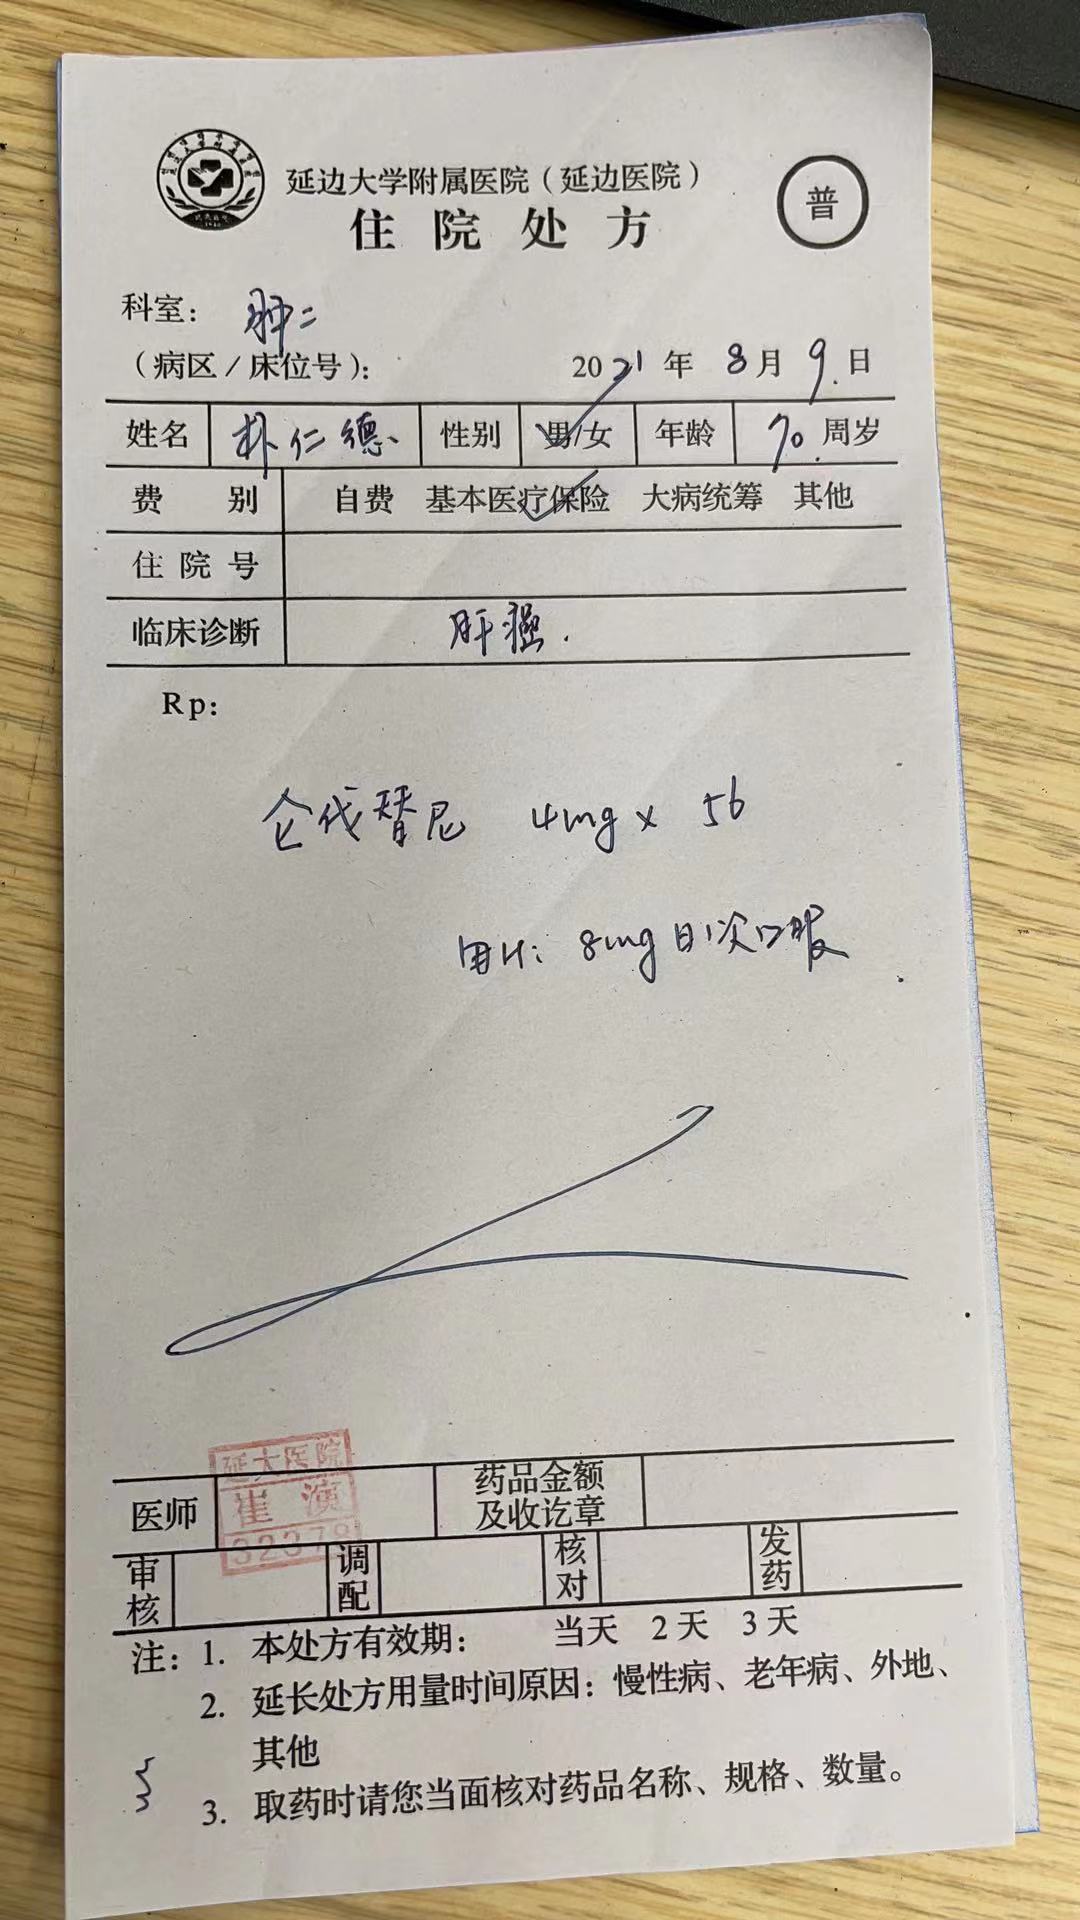 延边大学附属医院（延边医院）
住院处方
普
科室： 肿二
（病区／床位号）： 2021年 8月 9日
姓名 朴仁德 性别 男/女 年龄 70 周岁
费别 自费 基本医疗保险 大病统筹 其他
住院号
临床诊断 肝癌.
Rp:
仑伐替尼 4mg x 56
用法: 8mg 日1次口服
延大医院
医师 崔 演 药品金额及收讫章
32378
审核 调配 核对 发药
注：1. 本处方有效期： 当天 2天 3天
2. 延长处方用量时间原因：慢性病、老年病、外地、
其他
3. 取药时请您当面核对药品名称、规格、数量。